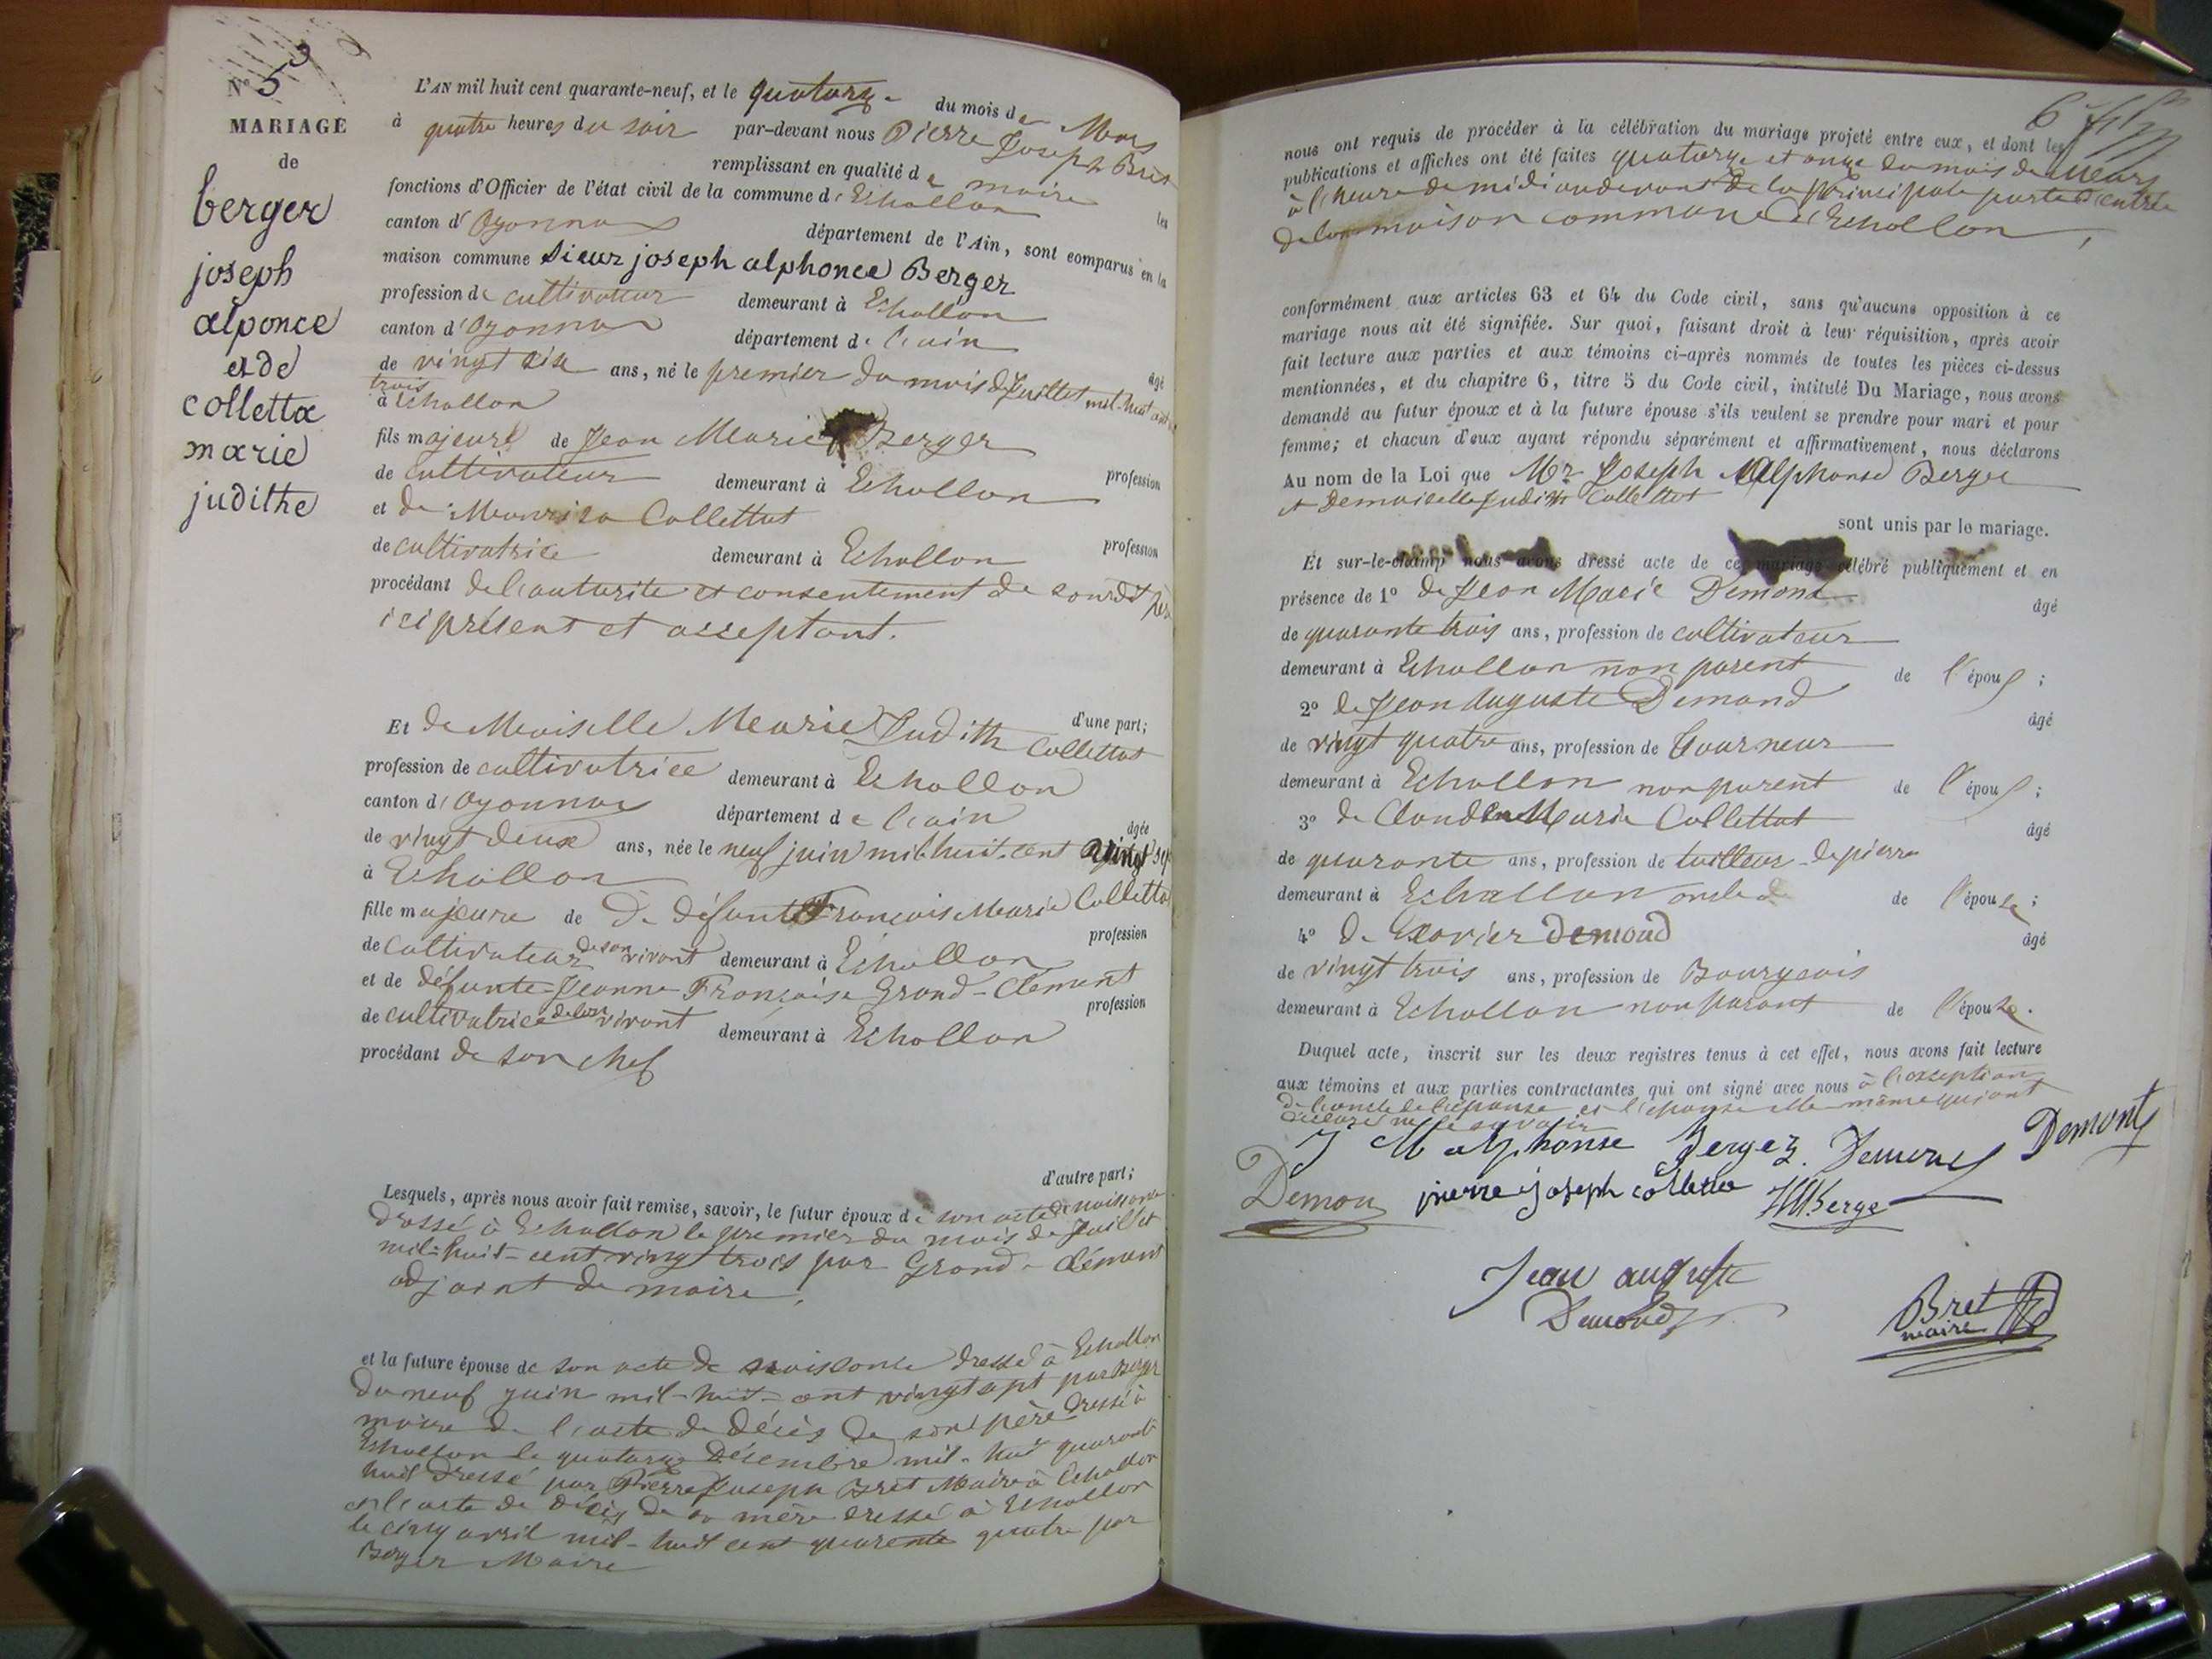 N° 5
MARIAGE
de
berger
joseph
alponce
et de
colletta
marie
judithe
L'AN mil huit cent quarante-neuf, et le quatorze du mois de Mars
à quatre heures du soir par-devant nous Pierre Joseph Bret
remplissant en qualité de maire les
fonctions d'Officier de l'état civil de la commune d'Echallon
canton d'Oyonnax département de l'Ain, sont comparus en la
maison commune Sieur joseph alphonce Berger
profession de cultivateur demeurant à Echallon
canton d'Oyonnax département de l'ain âgé
de vingt six ans, né le premier du mois de Juillet mil-huit cent
trois
à Echallon
fils majeur de Jean Marie Berger profession
de cultivateur demeurant à Echallon
et de Collettat profession
de cultivatrice demeurant à Echallon
procédant de l'autorite et consentement de son dit père
ici présent et acceptant.
d'une part;
Et de Moiselle Marie Judith Collettat
profession de cultivatrice demeurant à Echallon
canton d'Oyonnax département de l'ain âgée
de vingt deux ans, née le neuf juin mil huit-cent vingt sept
à Echallon
fille majeure de De défunt François Marie Colletta profession
de Cultivateur de son vivant demeurant à Echallon
et de défunte Jeanne Françoise Grand-Clément profession
de cultivatrice de son vivant demeurant à Echallon
procédant de son chef
d'autre part;
Lesquels, après nous avoir fait remise, savoir, le futur époux de son acte de naissance
dressé à Echallon le premier du mois de Juillet
mil-huit-cent vingt trois par Grand-Clément
adjoint de maire,
et la future épouse de son acte de naissance dressé à Echallon
du neuf juin mil-huit-cent vingt sept par Berger
maire de l'acte de décès de son père dressé à
Echallon le quatorze Désembre mil-huit quarante
huit dressé par Pierre Joseph Bret Maire à Echallon
et l'acte de décès de sa mère dressé à Echallon
le cinq avril mil-huit cent quarente quatre par
Berger Maire
6
nous ont requis de procéder à la célébration du mariage projeté entre eux, et dont les
publications et affiches ont été faites quatorze et onze du mois de Mars
à l'heure de midi audevant de la principale porte d'entrée
de la maison commune d'Echallon,
conformément aux articles 63 et 64 du Code civil, sans qu'aucune opposition à ce
mariage nous ait été signifiée. Sur quoi, faisant droit à leur réquisition, après avoir
fait lecture aux parties et aux témoins ci-après nommés de toutes les pièces ci-dessus
mentionnées, et du chapitre 6, titre 5 du Code civil, intitulé Du Mariage, nous avons
demandé au futur époux et à la future épouse s'ils veulent se prendre pour mari et pour
femme; et chacun d'eux ayant répondu séparément et affirmativement, nous déclarons
Au nom de la Loi que Mr Joseph Alphonse Berger
et Demoiselle Judith Collettat
sont unis par le mariage.
Et sur-le-champ nous avons dressé acte de ce mariage célébré publiquement et en
présence de 1° de Jean Marie Demond âgé
de quarante trois ans, profession de cultivateur
demeurant à Echallon non parent de l'épou ;
2° de Jean Auguste Demond âgé
de vingt quatre ans, profession de Tourneur
demeurant à Echallon non parent de l'épou ;
3° de Claude Marie Collettat âgé
de quarante ans, profession de tailleur de pierre
demeurant à Echallon oncle de l'épouse ;
4° de Xavier Demond âgé
de vingt trois ans, profession de Bourgeois
demeurant à Echallon non parant de l'épouse.
Duquel acte, inscrit sur les deux registres tenus à cet effet, nous avons fait lecture
aux témoins et aux parties contractantes qui ont signé avec nous à l'exception
de l'oncle de l'épouse et l'épouse elle même qui ont
déclaré ne le savoir
J M alphonse Berger. Demond Demond
Demon pierre joseph colletta JM Berge
Jean auguste
Demond
Bret
maire